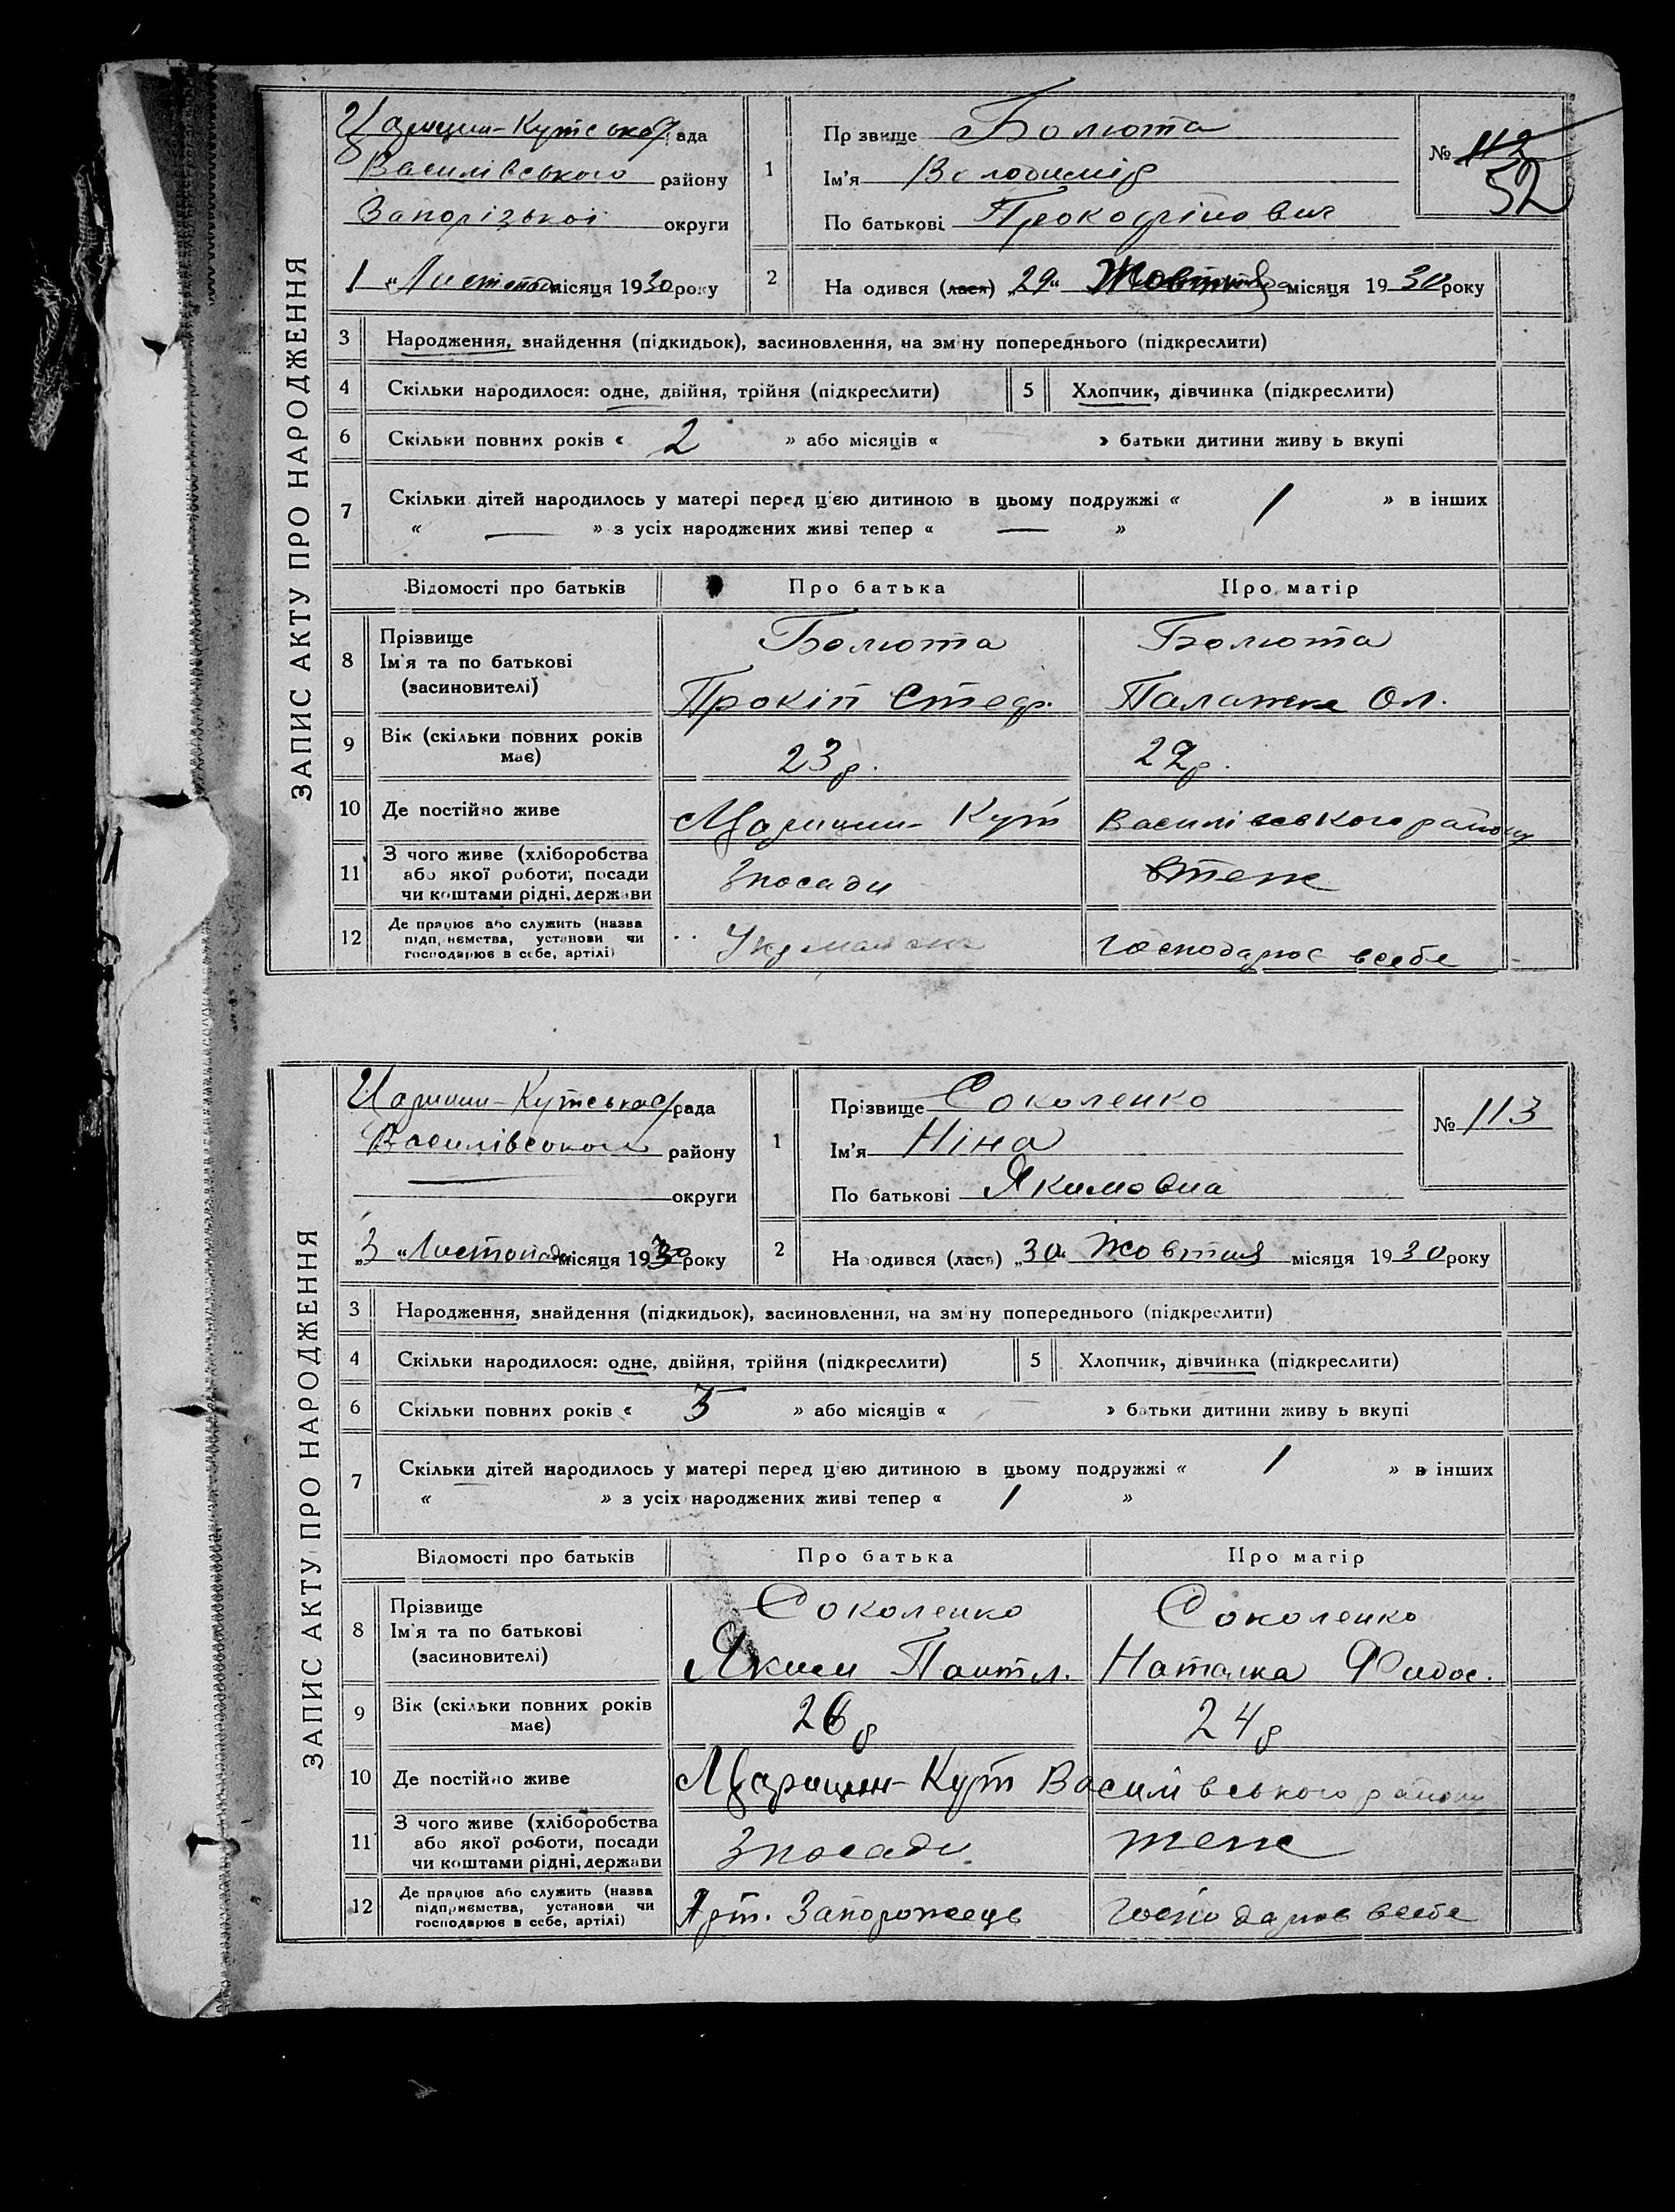 ЗАПИС АКТУ ПРО НАРОДЖЕННЯ
Царицин-Кутська рада
Василівського району
Запорізької округи
1 „Листопада місяця 1930 року
1
Пр звище Болюта
Ім'я Володимір
По батькові Прокофійович
№ 112
52
2 На одився (лася) „29“ Жовтня місяця 1930 року
3 Народження, знайдення (підкидьок), засиновлення, на зміну попереднього (підкреслити)
4 Скільки народилося: одне, двійня, трійня (підкреслити) 5 Хлопчик, дівчинка (підкреслити)
6 Скільки повних років « 2 » або місяців « » батьки дитини живу ь вкупі
7 Скільки дітей народилось у матері перед цією дитиною в цьому подружжі « 1 » в інших
« — » з усіх народжених живі тепер « — »
Відомості про батьків Про батька Про матір
8 Прізвище
Ім'я та по батькові
(засиновителі)
Болюта Болюта
Прокіп Стеф. Палажка Ол.
9 Вік (скільки повних років має) 23 р. 22 р.
10 Де постійно живе Царицин-Кут Василівського району
11 З чого живе (хліборобства
або якої роботи, посади
чи коштами рідні, держави
Зпосади теж
12 Де працює або служить (назва
підп, иємства, установи чи
господарює в себе, артілі)
господарює всебе
ЗАПИС АКТУ ПРО НАРОДЖЕННЯ
Царицин-Кутська рада
Василівського району
округи
„3 „Листопада місяця 1930 року
1
Прізвище Соколенко
Ім'я Ніна
По батькові Якимовна
№ 113
2 На одився (лася) „30“ Жовтня місяця 1930 року
3 Народження, знайдення (підкидьок), засиновлення, на зміну попереднього (підкреслити)
4 Скільки народилося: одне, двійня, трійня (підкреслити) 5 Хлопчик, дівчинка (підкреслити)
6 Скільки повних років « 5 » або місяців « » батьки дитини живу ь вкупі
7 Скільки дітей народилось у матері перед цією дитиною в цьому подружжі « 1 » в інших
« » з усіх народжених живі тепер « 1 »
Відомості про батьків Про батька Про матір
8 Прізвище
Ім'я та по батькові
(засиновителі)
Соколенко Соколенко
Яким Пантл. Наталка Фидос.
9 Вік (скільки повних років має) 26 р 24 р
10 Де постійно живе Царицин-Кут Василівського району
11 З чого живе (хліборобства
або якої роботи, посади
чи коштами рідні, держави
Зпосади теж
12 Де працює або служить (назва
підприємства, установи чи
господарює в себе, артілі)
Арт. Запорожець господарює всебе